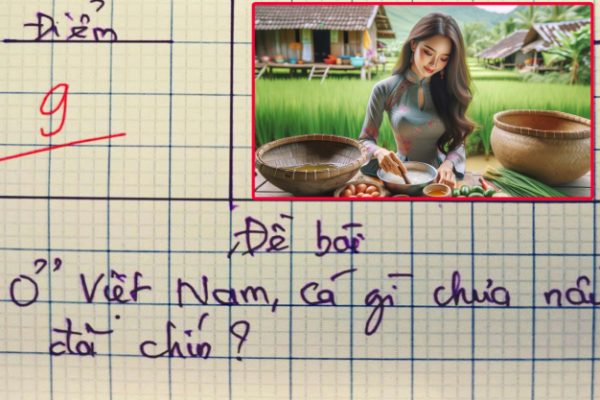 Điểm
9
Đề bài
Ở Việt Nam, cá gì chưa nấu
đã chín?